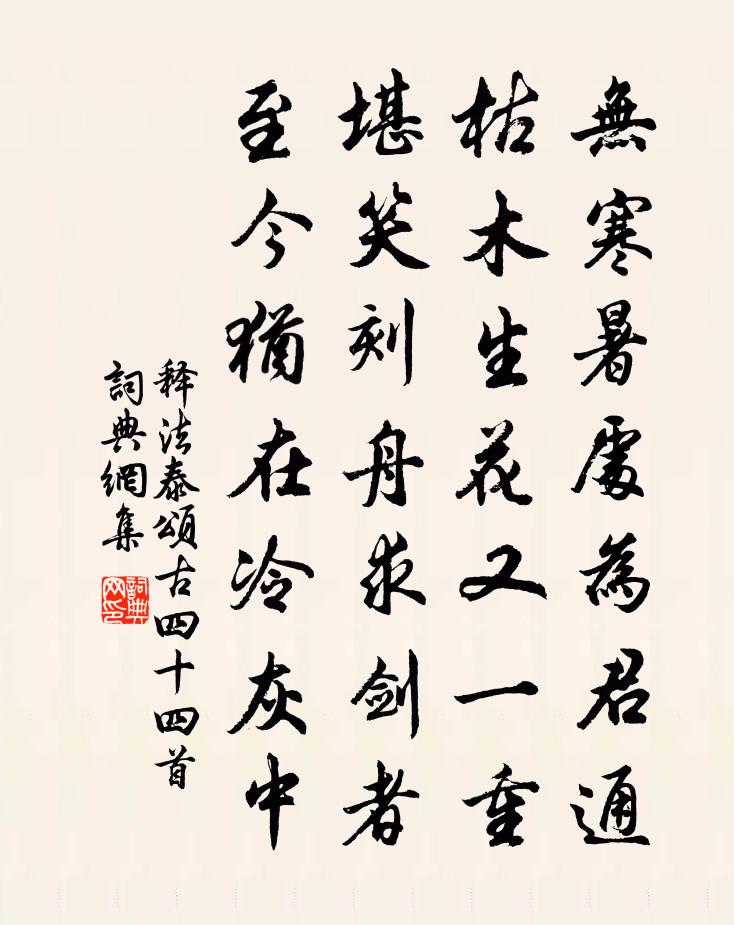 無寒暑處為君通
枯木生花又一重
堪笑刻舟求剑者
至今猶在冷灰中
释法泰頌古四十四首
詞典網集
詞典网印